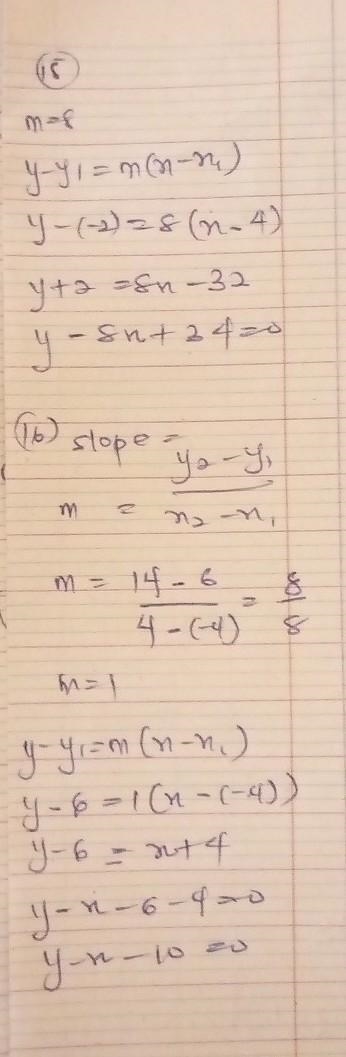 (15)
m=8
y-y1=m(x-x1)
y-(-2)=8(x-4)
y+2=8x-32
y-8x+34=0
(16) slope=
m = y2-y1/x2-x1
m = 14-6/4-(-4) = 8/8
m=1
y-y1=m(x-x1)
y-6=1(x-(-4))
y-6=x+4
y-x-6-4=0
y-x-10=0